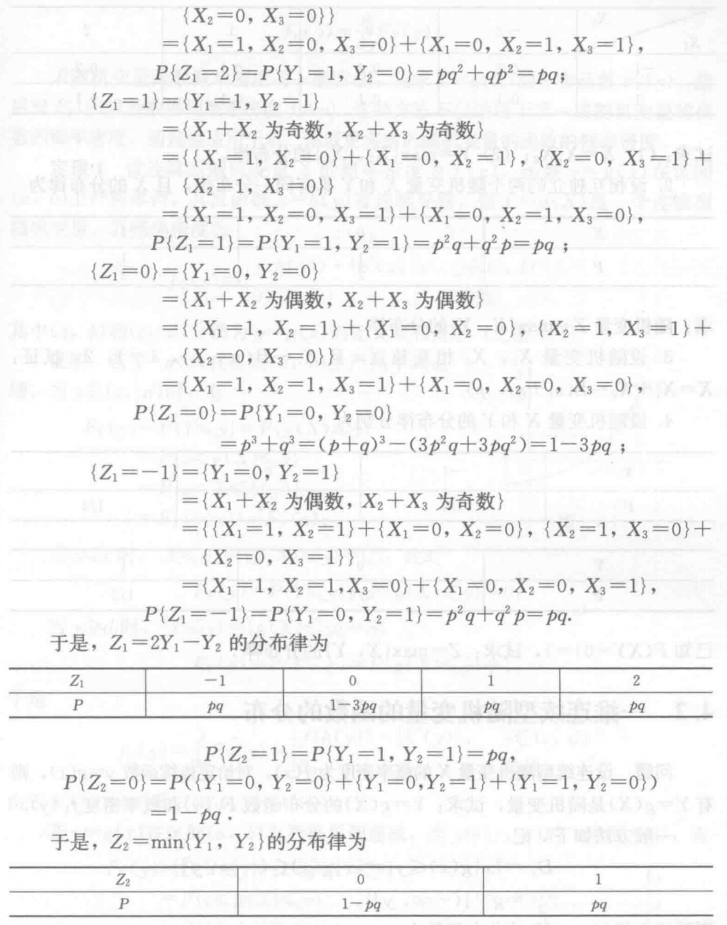 {X₂=0, X₃=0}}
={X₁=1, X₂=0, X₃=0}+{X₁=0, X₂=1, X₃=1},
P{Z₁=2}=P{Y₁=1, Y₂=0}=pq²+qp²=pq;
{Z₁=1}={Y₁=1, Y₂=1}
={X₁+X₂ 为奇数, X₂+X₃ 为奇数}
={{X₁=1, X₂=0}+{X₁=0, X₂=1}, {X₂=0, X₃=1}+
{X₂=1, X₃=0}}
={X₁=1, X₂=0, X₃=1}+{X₁=0, X₂=1, X₃=0},
P{Z₁=1}=P{Y₁=1, Y₂=1}=p²q+q²p=pq;
{Z₁=0}={Y₁=0, Y₂=0}
={X₁+X₂ 为偶数, X₂+X₃ 为偶数}
={{X₁=1, X₂=1}+{X₁=0, X₂=0}, {X₂=1, X₃=1}+
{X₂=0, X₃=0}}
={X₁=1, X₂=1, X₃=1}+{X₁=0, X₂=0, X₃=0},
P{Z₁=0}=P{Y₁=0, Y₂=0}
=p³+q³=(p+q)³-(3p²q+3pq²)=1-3pq;
{Z₁=-1}={Y₁=0, Y₂=1}
={X₁+X₂ 为偶数, X₂+X₃ 为奇数}
={{X₁=1, X₂=1}+{X₁=0, X₂=0}, {X₂=1, X₃=0}+
{X₂=0, X₃=1}}
={X₁=1, X₂=1, X₃=0}+{X₁=0, X₂=0, X₃=1},
P{Z₁=-1}=P{Y₁=0, Y₂=1}=p²q+q²p=pq.
于是, Z₁=2Y₁-Y₂ 的分布律为
Z₁ -1 0 1 2
P pq 1-3pq pq pq
P{Z₂=1}=P{Y₁=1, Y₂=1}=pq,
P{Z₂=0}=P({Y₁=0, Y₂=0}+{Y₁=0,Y₂=1}+{Y₁=1, Y₂=0})
=1-pq.
于是, Z₂=min{Y₁, Y₂}的分布律为
Z₂ 0 1
P 1-pq pq